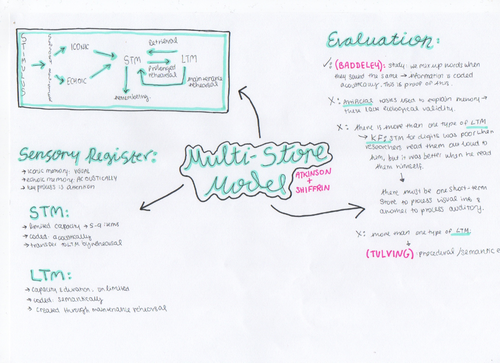 STIMULUS
SENSORY STORE
ICONIC
ECHOIC
STM
LTM
Retrieval
Prolonged rehearsal
maintenance rehearsal
remembering
Multi-Store
Model
ATKINSON
+
SHIFFRIN
Sensory Register:
→ iconic memory: visual
→ echoic memory: ACOUSTICALLY
→ key process is attention
STM:
→ limited capacity → 5-9 items
→ coded: acoustically
→ transfer to LTM by rehearsal
LTM:
→ capacity & duration: unlimited
→ coded: semantically
→ created through maintenance rehearsal
Evaluation:
✓: (BADDELEY): study: we mix up words when
they sound the same → information is coded
acoustically. This is proof of this.
X: Artificial tasks used to explain memory →
these lack ecological validity.
X: there is more than one type of LTM
→ KF: STM for digits was poor when
researchers read them out loud to
him, but it was better when he read
them himself.
there must be one short-term
store to process visual info &
another to process auditory.
X: more than one type of LTM.
(TULVING): procedural / semantic